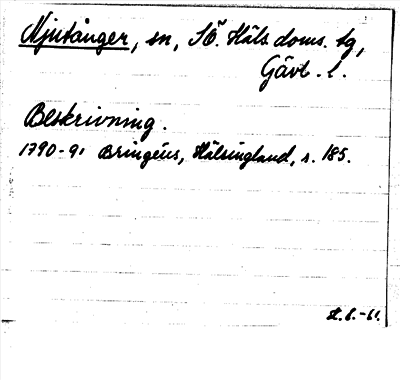 Njutånger, sn, SÖ. Häls. doms. tg,
Gävl. l.
Beskrivning.
1790-91 Bringéus, Hälsingland, s. 185.